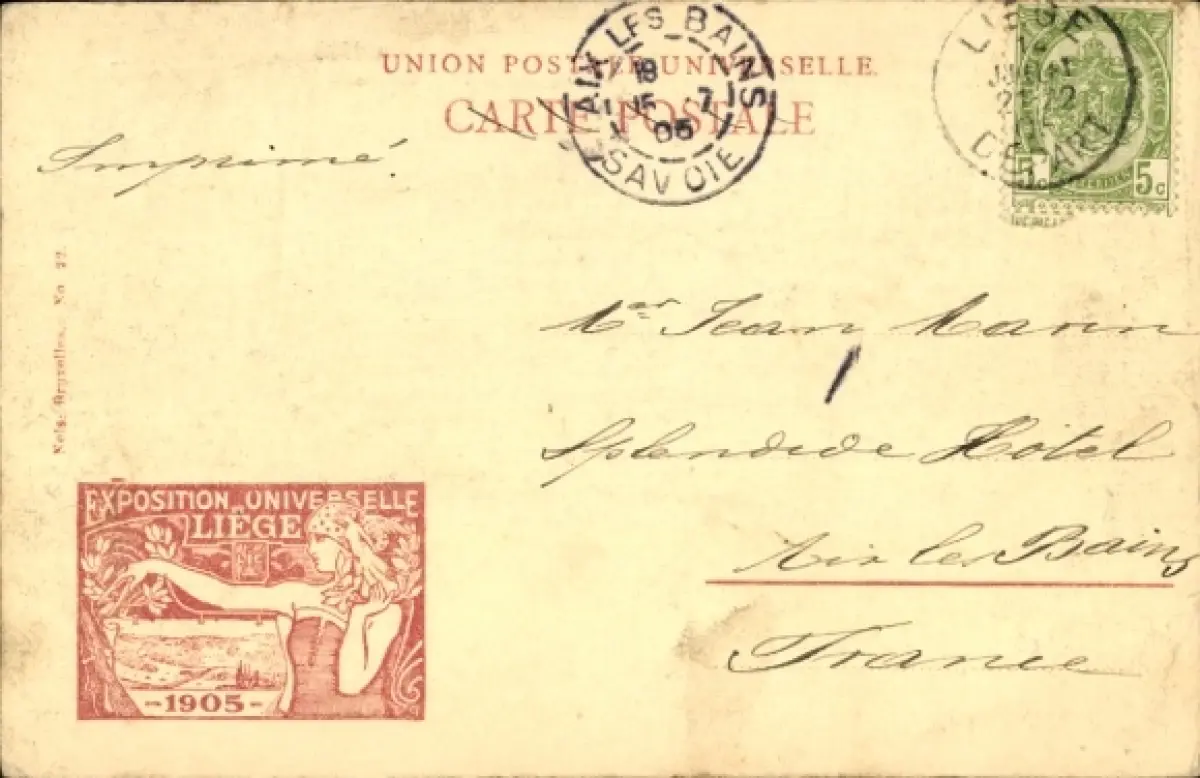 UNION POSTALE UNIVERSELLE
CARTE POSTALE
AIX LES BAINS
18
15 7
05
SAVOIE
LIÈGE
DEPART
5c 5c
Imprimé
Nels, Bruxelles. No 22
Mer Jean Marin
Splendide Hôtel
Aix les Bains
France
EXPOSITION UNIVERSELLE
LIÈGE
1905